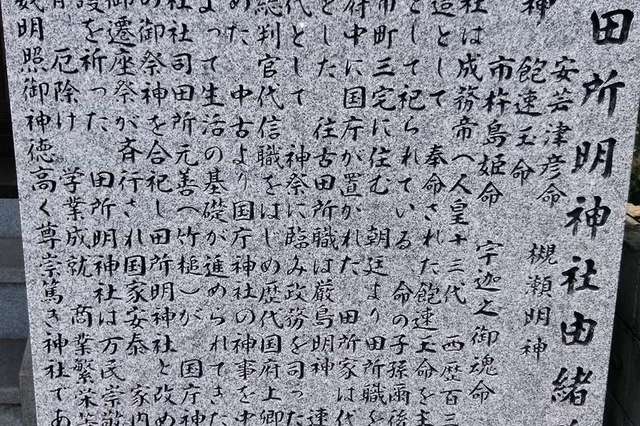 田所明神社由緒
安芸津彦命 槻瀬明神
飽速玉命
市杵島姫命 宇迦之御魂命
神
社は成務帝(人皇十三代 西歴百三
造として 奉命された飽速玉命を主
として祀られている 命の子孫爾後
市町三宅に住む 朝廷より田所職を
府中に国庁が置かれた 田所家は代
とした 往古田所職は厳島明神 速
代として 神祭に臨み政務を司った
総判官代信職をはじめ歴代国府上卿
めた 中古より国庁神社の神事を中
よって生活の基礎が進められてきた
社社司田所元善(竹槌)が 国庁神
の御祭神を合祀し田所明神社と改め
御遷座祭が斉行され国家安泰 家内
護を祈った 田所明神社は万民崇敬
厄除け 学業成就 商業繁栄
明照御神徳高く尊崇篤き神社であ